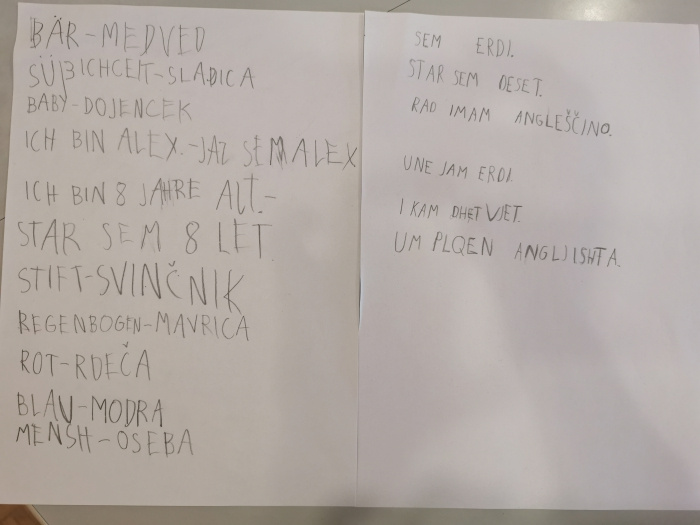 BÄR-MEDVED
SÜßICHCEIT-SLADICA
BABY-DOJENCEK
ICH BIN ALEX.-JAZ SEM ALEX
ICH BIN 8 JAHRE ALT.-
STAR SEM 8 LET
STIFT-SVINČNIK
REGENBOGEN-MAVRICA
ROT-RDEČA
BLAU-MODRA
MENSH-OSEBA
SEM ERDI.
STAR SEM DESET.
RAD IMAM ANGLEŠČINO.
UNE JAM ERDI.
I KAM DHET VJET.
UM PLQEN ANGLJISHTA.